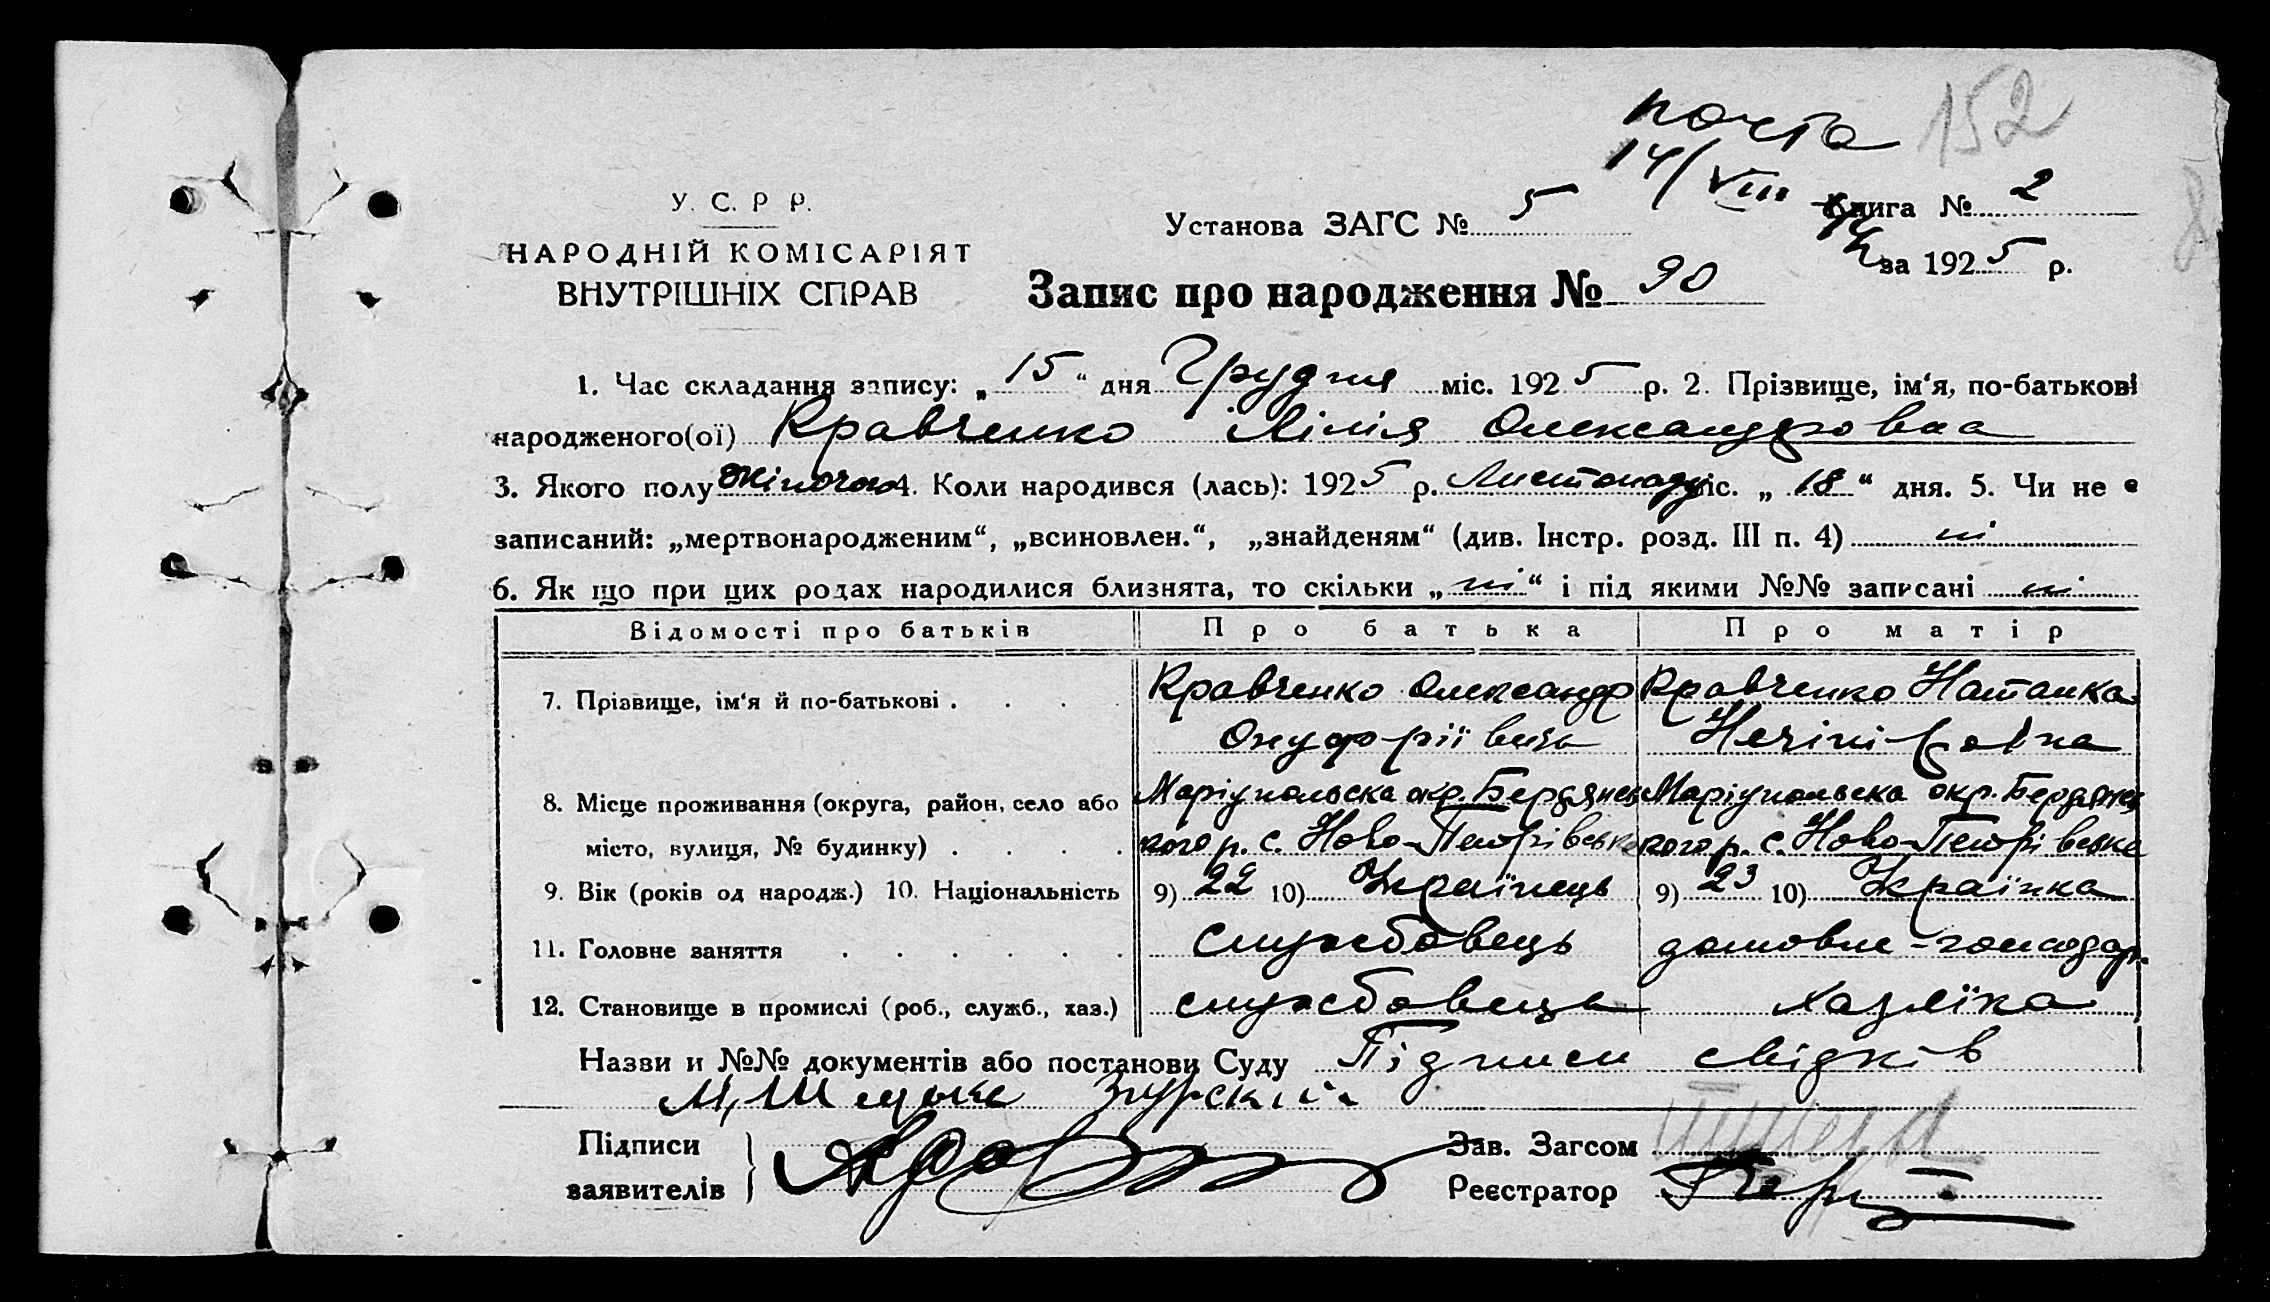 почта 152
14/VIII
У. С. Р Р.
Установа ЗАГС № 5 Книга № 2
НАРОДНІЙ КОМІСАРІЯТ
за 1925 р.
ВНУТРІШНІХ СПРАВ
Запис про народження № 90
1. Час складання запису: „15“ дня Грудня міс. 1925 р. 2. Прізвище, ім‘я, по-батькові
народженого(ої) Кравченко Лілія Олександровна
3. Якого полу жіночого 4. Коли народився (лась): 1925 р. Листопаду міс. „18“ дня. 5. Чи не є
записаний: „мертвонародженим“, „всиновлен.“, „знайденям“ (див. Інстр. розд. III п. 4) ні
6. Як що при цих родах народилися близнята, то скільки „ні“ і під якими №№ записані ні
Відомості про батьків Про батька Про матір
7. Прізвище, ім‘я й по-батькові . . . . Кравченко Олександр Кравченко Наталка
Онуфріївичь Нечіпіровна
8. Місце проживання (округа, район, село або Маріупольска окр. Бердянсь Маріупольска окр. Бердянсь
місто, вулиця, № будинку) . . . . кого р. с. Ново-Петрівське кого р. с. Ново-Петрівське
9. Вік (років од народж.) 10. Національність 9) 22 10) Українець 9) 23 10) Українка
11. Головне заняття . . . . . . службовець домовле-господар.
12. Становище в промислі (роб., служб., хаз.) службовець хазяїка
Назви и №№ документів або постанови Суду Підписи свідків
Підписи Зав. Загсом
заявителів Реєстратор